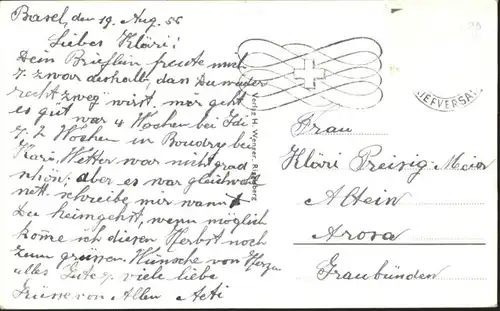 Basel, den 19. Aug. 56
Liebes Kläri!
Dein Brieflein freute mich
u. zwar deshalb dan Du wieder
recht zweg wirst. mir geht
es gut war 4 Wochen bei Idi
u. 2 Wochen in Boudry bei
Karis, Wetter war nicht grad
schön; aber es war gleichwohl
nett. schreibe mir wann
Du heimgehst, wenn möglich
kome ich diesen Herbst noch
zum grüssen. Wünsche von Herzen
alles Gute u. viele liebe
Grüsse von Allen
Verlag H. Wenger,
IEFVERSA
Frau
Kläri Preisig-Meier
Altein
Arosa
Graubünden